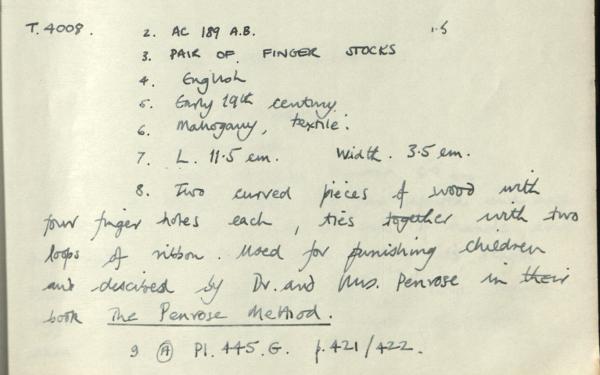 T. 4008. 2. AC 189 A.B. 1.5
3. PAIR OF FINGER STOCKS
4. English
5. Early 19th century
6. Mahogany, textile.
7. L. 11.5 cm. Width. 3.5 cm.
8. Two curved pieces of wood with
four finger holes each, ties together with two
loops of ribbon. Used for punishing children
and described by Dr. and Mrs. Penrose in their
book The Penrose Method.
9 A Pl. 445. G. p. 421/422.